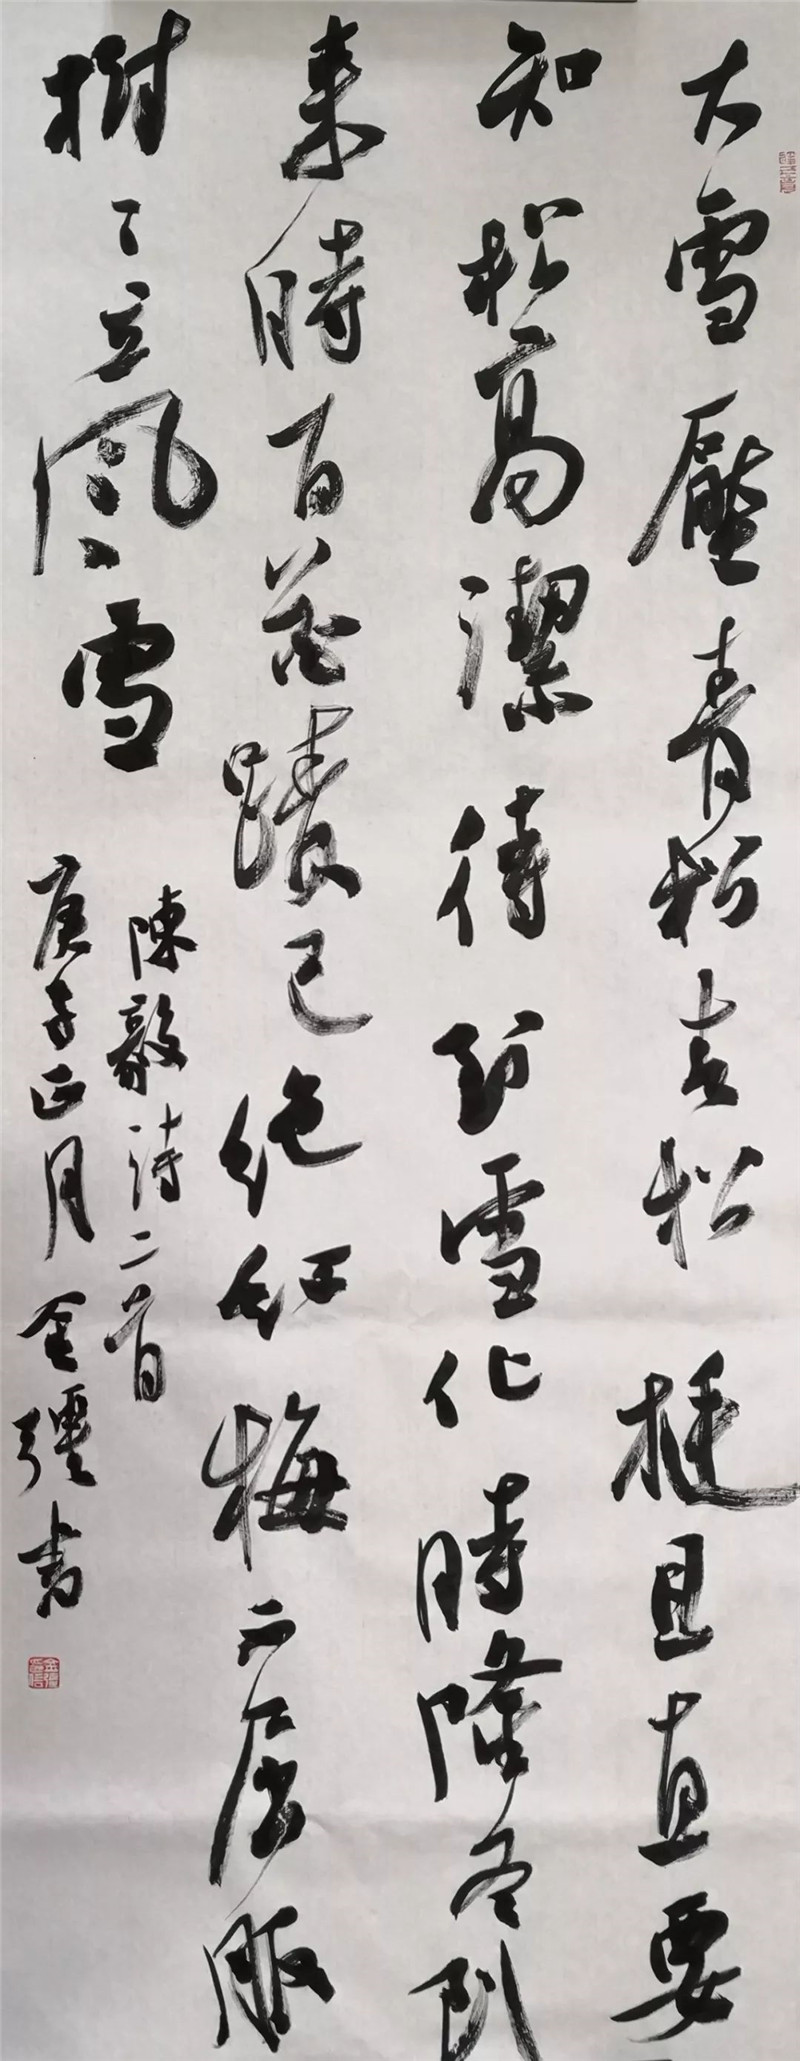 大雪壓青松青松挺且直要
知松高潔待到雪化時隆冬到
來時百花蹟已絕紅梅不屈服
樹々立風雪
陳毅詩二首
庚子正月金彊書